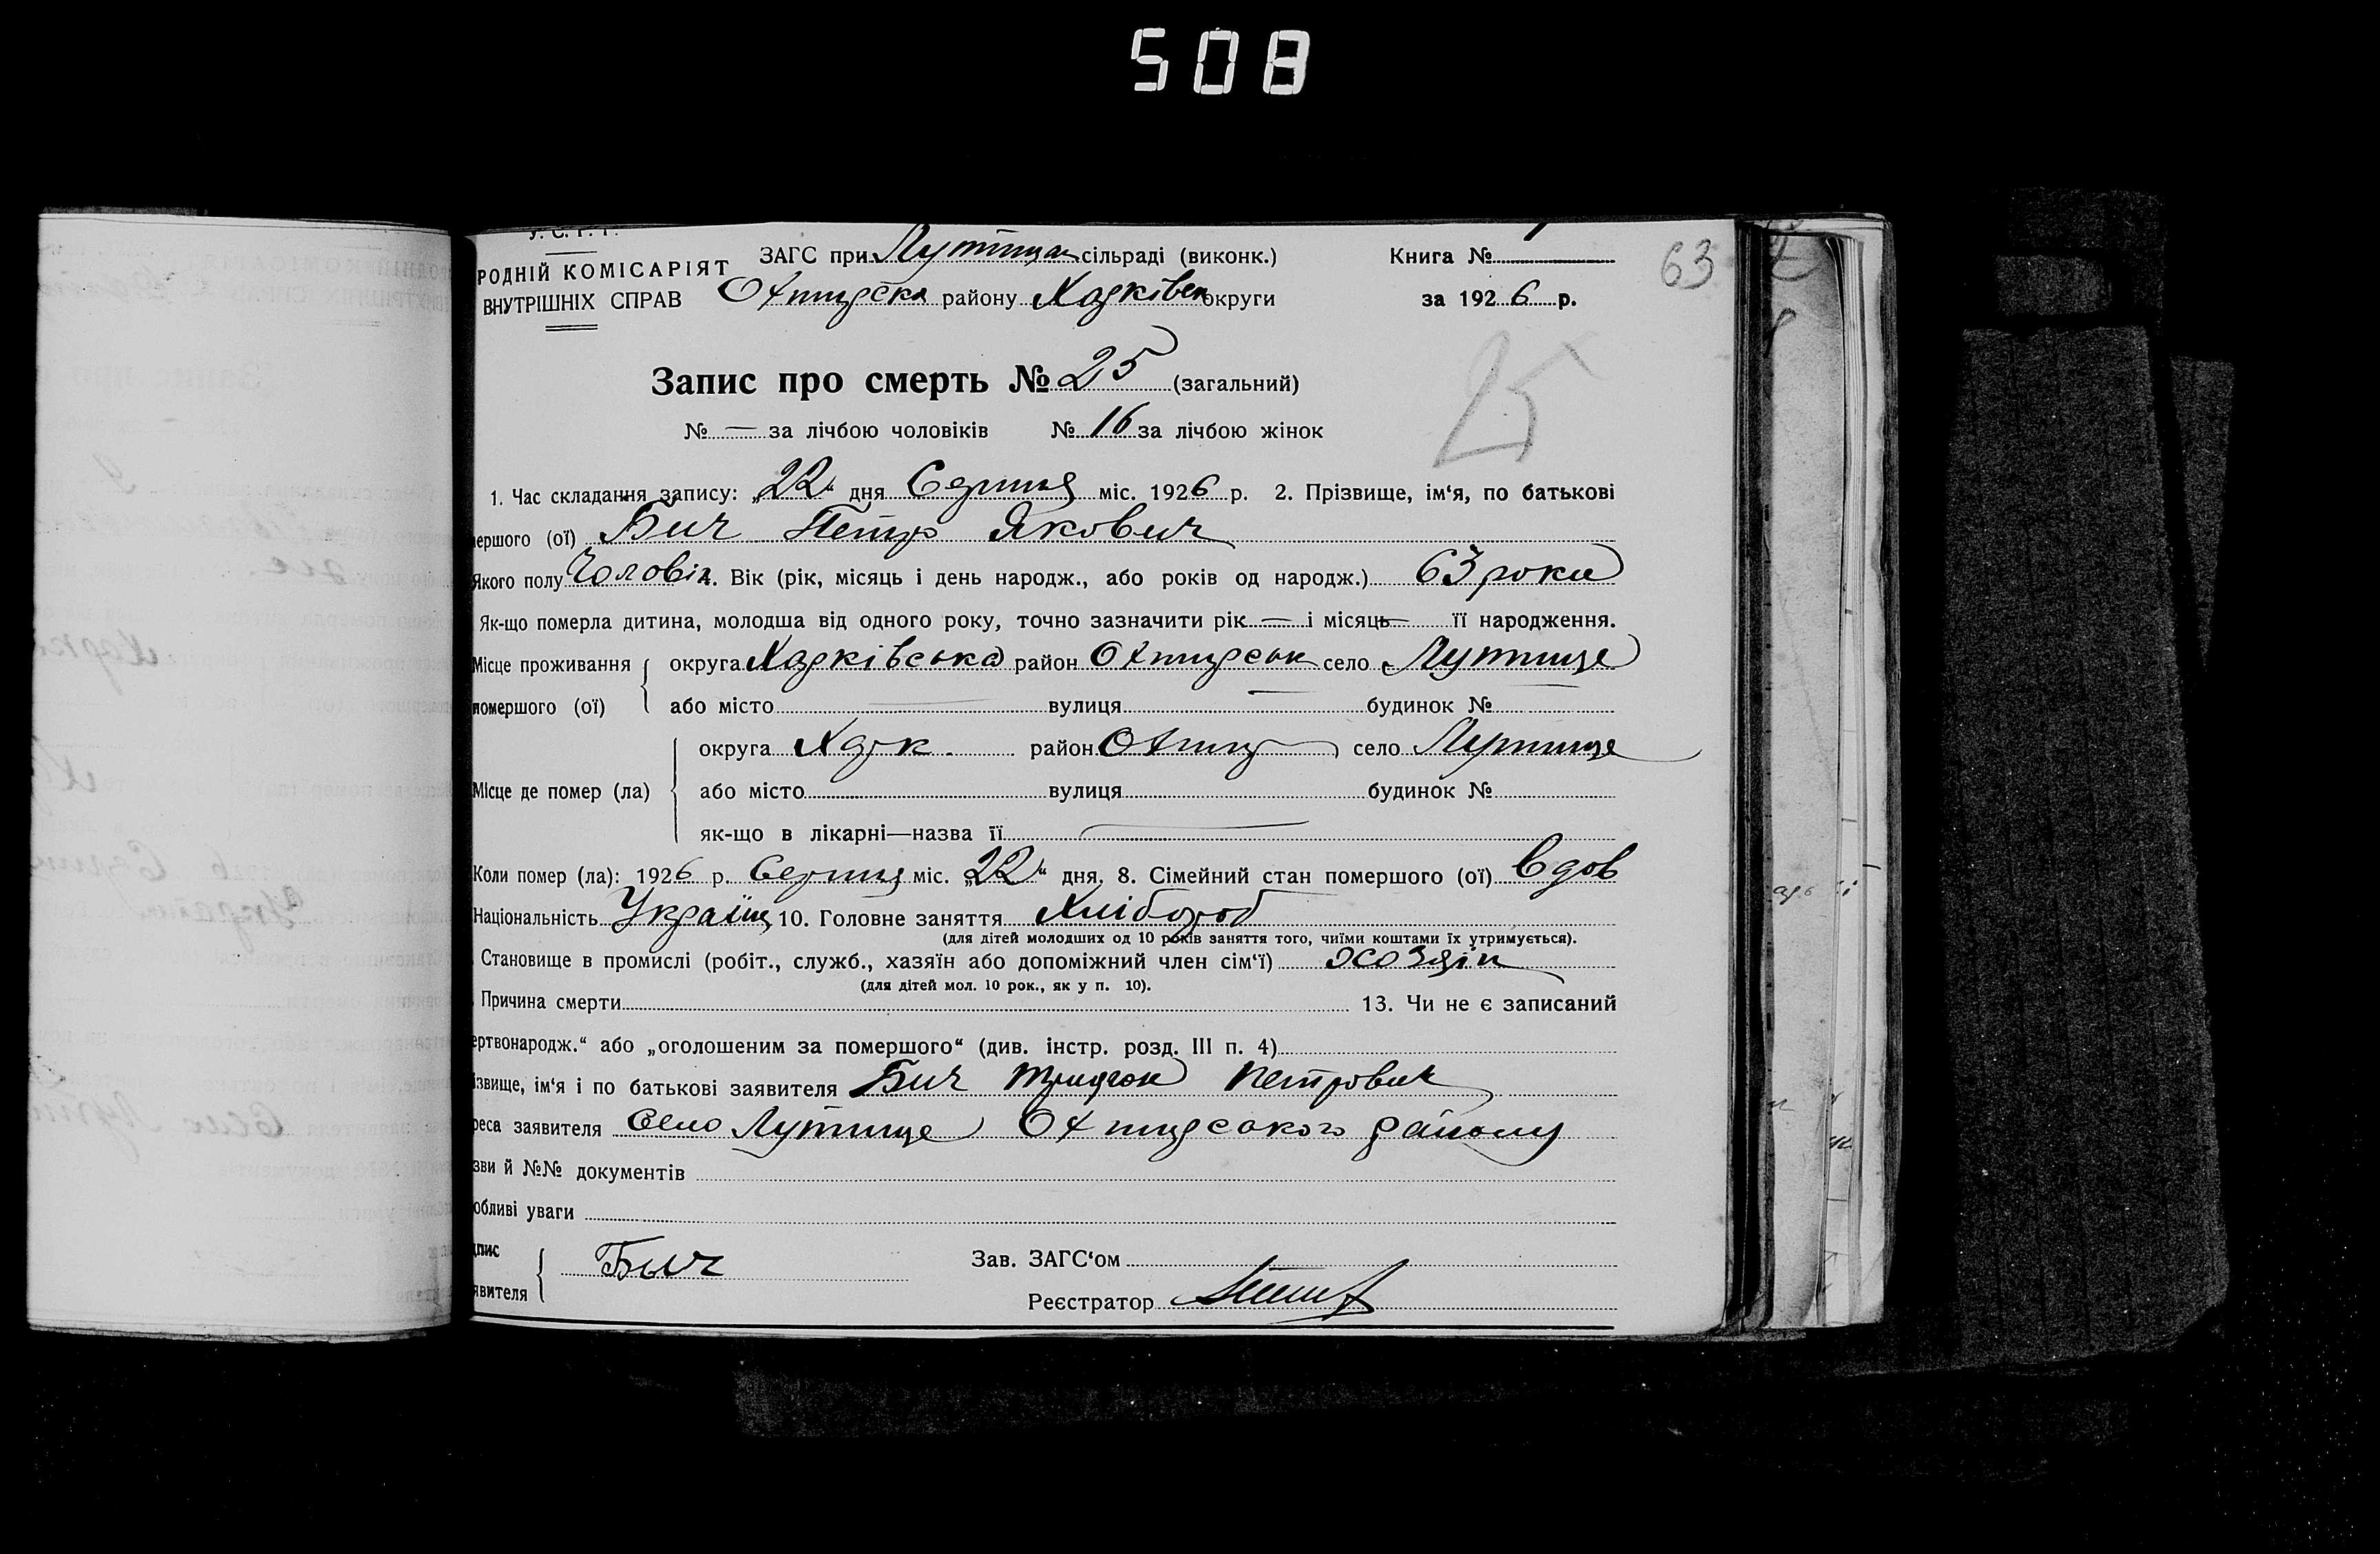 508
ЗАГС при Лутищан сільраді (виконк.) Книга № 63
РОДНІЙ КОМІСАРІЯТ
ВНУТРІШНІХ СПРАВ Охтирська району Харківськ округи за 1926 р.
Запис про смерть № 25 (загальний)
25
№ — за лічбою чоловіків № 16 за лічбою жінок
1. Час складання запису: „22“ дня Серпня міс. 1926 р. 2. Прізвище, ім‘я, по батькові
ершого (ої) Бич Петро Якович
Якого полу Чоловік. Вік (рік, місяць і день народж., або років од народж.) 63 роки
Як-що померла дитина, молодша від одного року, точно зазначити рік — і місяць — її народження.
Місце проживання округа Харківська район Охтирськ село Лутище
помершого (ої) або місто — вулиця — будинок № —
округа Харк. район Охтир село Лутище
Місце де помер (ла) або місто вулиця будинок №
як-що в лікарні—назва її —
Коли помер (ла): 1926 р. Серпня міс. „22“ дня. 8. Сімейний стан помершого (ої) Вдов
Національність Україн 10. Головне заняття Хлібороб
(для дітей молодших од 10 років заняття того, чиїми коштами їх утримується).
Становище в промислі (робіт., служб., хазяїн або допоміжний член сім‘ї) хозяїн
(для дітей мол. 10 рок., як у п. 10).
Причина смерти 13. Чи не є записаний
ертвонародж.“ або „оголошеним за померлого“ (див. інстр. розд. III п. 4)
ізвище, ім‘я і по батькові заявителя Бич Петрович
реса заявителя Село Лутище Охтирського району
зви й №№ документів
обливі уваги
дпис Бич Зав. ЗАГС‘ом
явителя Реєстратор